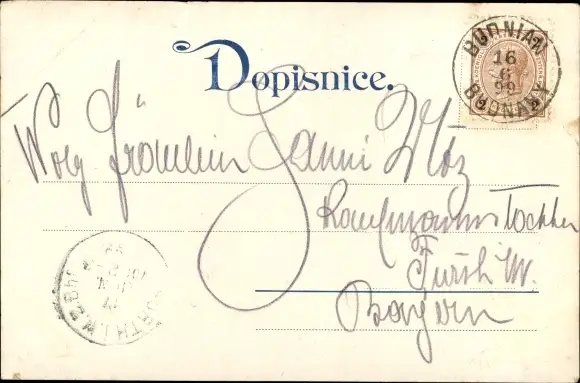 Dopisnice.
BUDNIAN
16
6
99
BUDŇANY
Wolg Fräulein Fanni
Kaufmannstochter
Furth i/W.
Bayern
FURTH I.W.
17